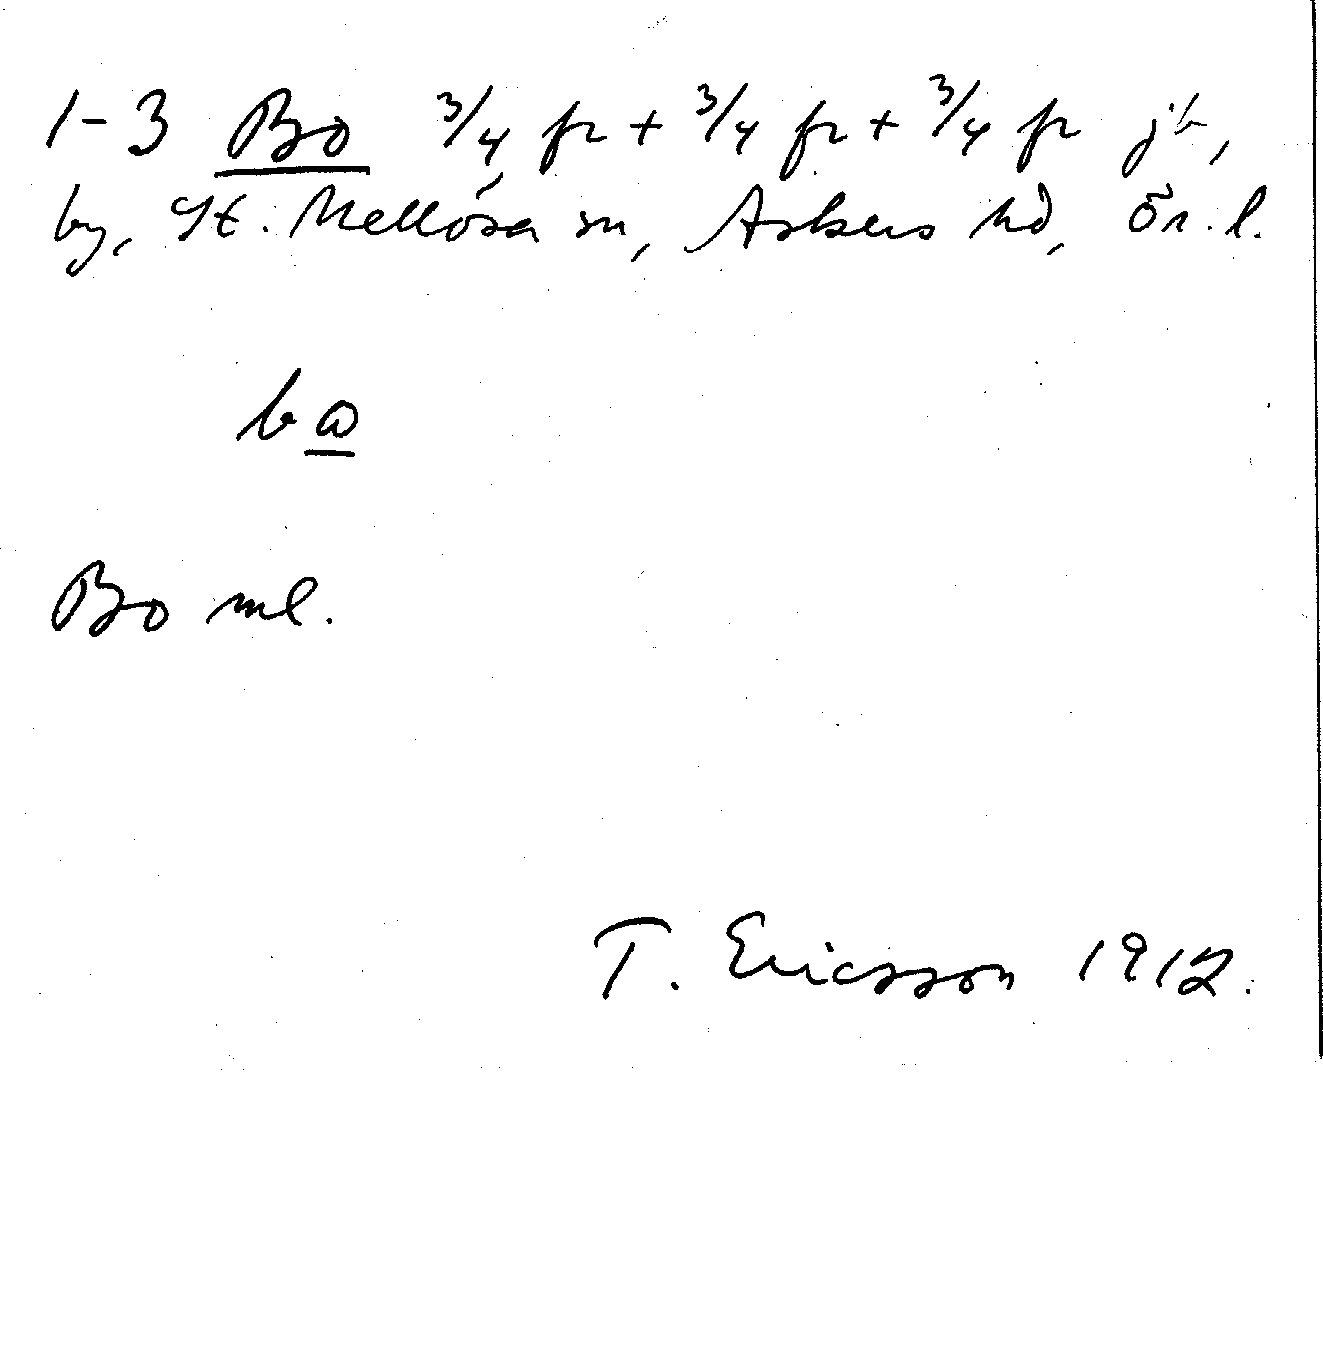 1-3 Bo 3/4 fr + 3/4 fr + 3/4 fr jb,
by, St. Mellösa sn, Askers hd, Ör. l.
bω
Bo ml.
T. Ericsson 1912.